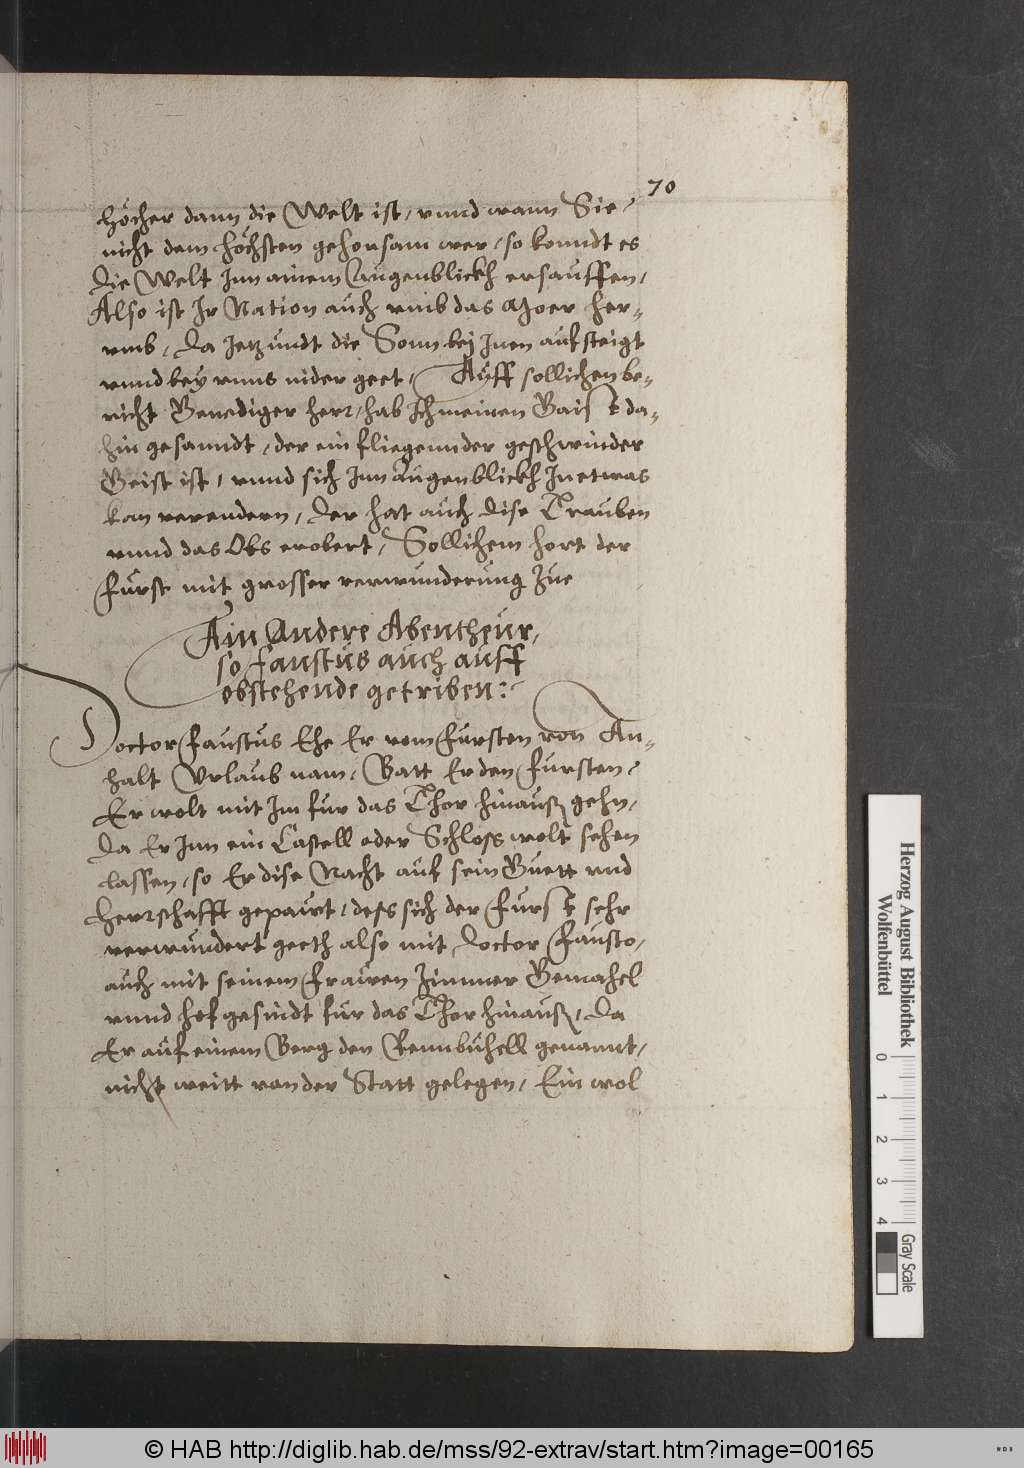 70
höcher dann die Welt ist, vnnd wann Sie,
nicht dem höchsten gehorsam wer, so konndt es
die Welt Inn ainem Augenblickh ersauffen,
Also ist Ir Nation auch vmb das Moer her-
vmb, da Jetzundt die Sonn bej Inen aufsteigt
vnnd bey vnns nider geet, Auff sollichen be-
richt Genediger herr, hab Ich meinen Gaist da-
hin gesanndt, der ein fliegennder geschwinder
Geist ist, vnnd sich Inn Augenblickh In etwas
kan verendern, der hat auch dise Trauben
vnnd das Obs erobert, Sollichem hort der
Furst mit grosser verwunderung Zue
Ain Andere Abentheur,
so Faustus auch auff
obstehende getriben:
Doctor Faustus Ehe Er vom Fursten von An-
halt Vrlaub nam, Batt Er den Fursten,
Er wolt mit Im fur das Thor hinauß gehn,
da Er Inn ein Castell oder Schloss wolt sehen
lassen, so Er dise Nacht auf sein Guett vnd
herrschafft gepaut, dess sich der Furst sehr
verwundert geeth also mit Doctor Fausto,
auch mit seinem Frawen Zimmer Gemahel
vnnd hofgesindt fur das Thor hinauß, da
Er auf einem Berg den Rennbuhell genannt,
nicht weitt von der Statt gelegen, Ein wol
Herzog August Bibliothek
Wolfenbüttel
0 1 2 3 4
Gray Scale
© HAB http://diglib.hab.de/mss/92-extrav/start.htm?image=00165
WDB